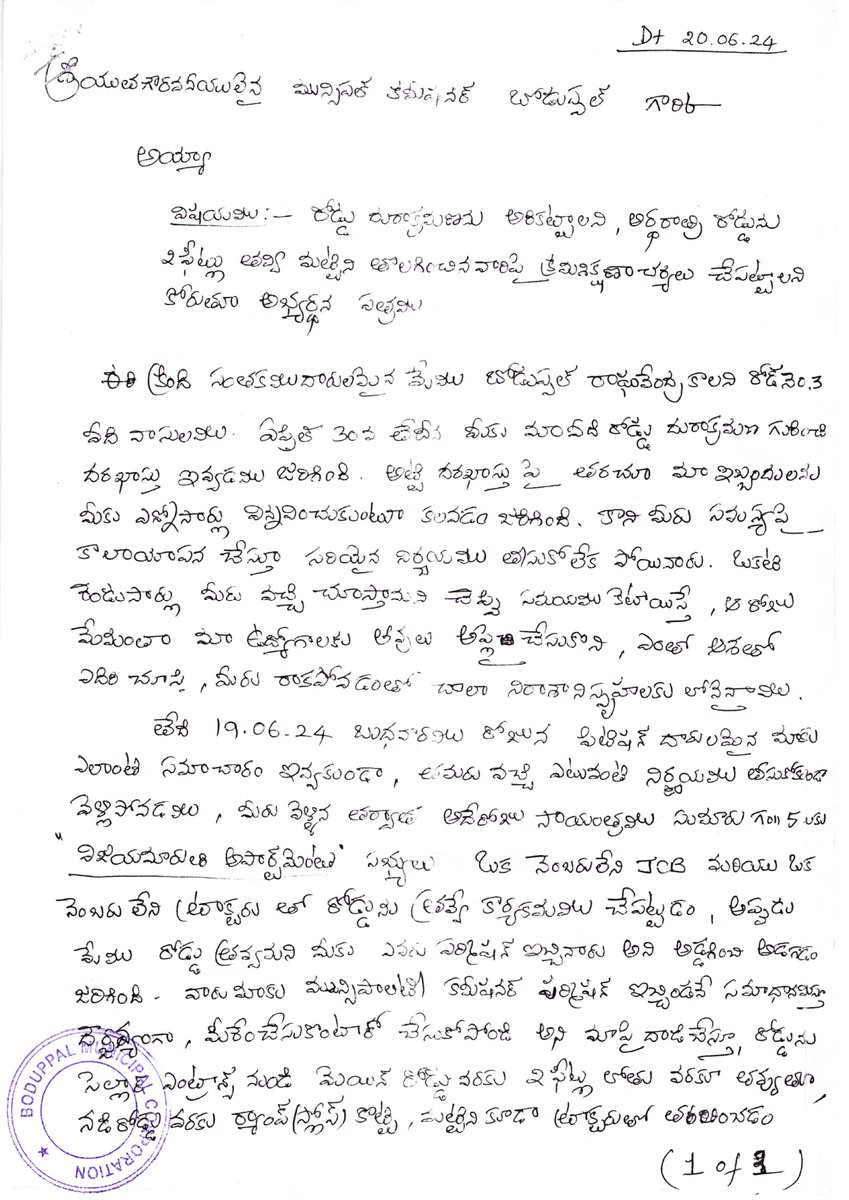 Dt 20.06.24
శ్రీయుత గౌరవనీయులైన మున్సిపల్ కమీషనర్ బోడుప్పల్ గారికి
అయ్యా
విషయము :- రోడ్డు దురాక్రమణను అరికట్టాలని, అర్థరాత్రి రోడ్డును
2 ఫీట్లు తవ్వి మట్టిని తొలగించిన వారిపై క్రమశిక్షణా చర్యలు చేపట్టాలని
కోరుతూ అభ్యర్థన పత్రము
ఈ క్రింది సంతకముదారులమైన మేము బోడుప్పల్ రాఘవేంద్ర కాలని రోడ్ నెం.3
వీది వాసులము. ఏప్రిల్ 30వ తేదీన మీకు మా వీది రోడ్డు దురాక్రమణ గురించి
దరఖాస్తు ఇవ్వడము జరిగింది. అట్టి దరఖాస్తు పై తరచూ మా ఇబ్బందులను
మీకు ఎన్నోసార్లు విన్నవించుకుంటూ కలవడం జరిగింది. కాని మీరు సమస్యపై
కాలాయాపన చేస్తూ సరియైన నిర్ణయము తీసుకోలేక పోయినారు. ఒకటి
రెండుసార్లు మీరు వచ్చి చూస్తామని చెప్పి సమయము కేటాయిస్తే, ఆ రోజు
మేమంతా మా ఉద్యోగాలకు లీవులు అప్లై చేసుకొని, ఎంతో ఆశతో
ఎదిరి చూస్తే, మీరు రాకపోవడంతో చాలా నిరాశా నిస్పృహలకు లోనైనాము.
తేది 19.06.24 బుధవారము రోజున పిటిషన్ దారులమైన మాకు
ఎలాంటి సమాచారం ఇవ్వకుండా, తమరు వచ్చి ఎటువంటి నిర్ణయము తీసుకోకుండా
వెళ్లిపోవడము, మీరు వెళ్ళిన తర్వాత అదేరోజు సాయంత్రము సుమారు గం॥ 5 లకు
"విజయమారుతి అపార్ట్‌మెంటు" సభ్యులు ఒక నెంబరులేని JCB మరియు ఒక
నెంబరు లేని ట్రాక్టరు తో రోడ్డును త్రవ్వే కార్యక్రమము చేపట్టడం, అప్పుడు
మేము రోడ్డు త్రవ్వమని మీకు ఎవరు పర్మిషన్ ఇచ్చినారు అని అడ్డగించి అడగడం
జరిగింది. వారు మాకు మున్సిపాలిటీ కమీషనర్ పర్మిషన్ ఇచ్చిండనే సమాధానమిస్తూ
దౌర్జన్యంగా, మీరేంచేసుకొంటారో చేసుకోపోండి అని మాపై దాడి చేస్తూ, రోడ్డును
సెల్లార్ ఎంట్రాన్స్ నుండి మెయిన్ రోడ్డు వరకు 2 ఫీట్లు లోతు వరకూ తవ్వుతూ,
నడి రోడ్డు వరకు ర్యాంప్ (స్లోప్) కొట్టి, మట్టిని కూడా ట్రాక్టరుతో తరలించడం
(1 of 3)
BODUPPAL MUNICIPAL CORPORATION